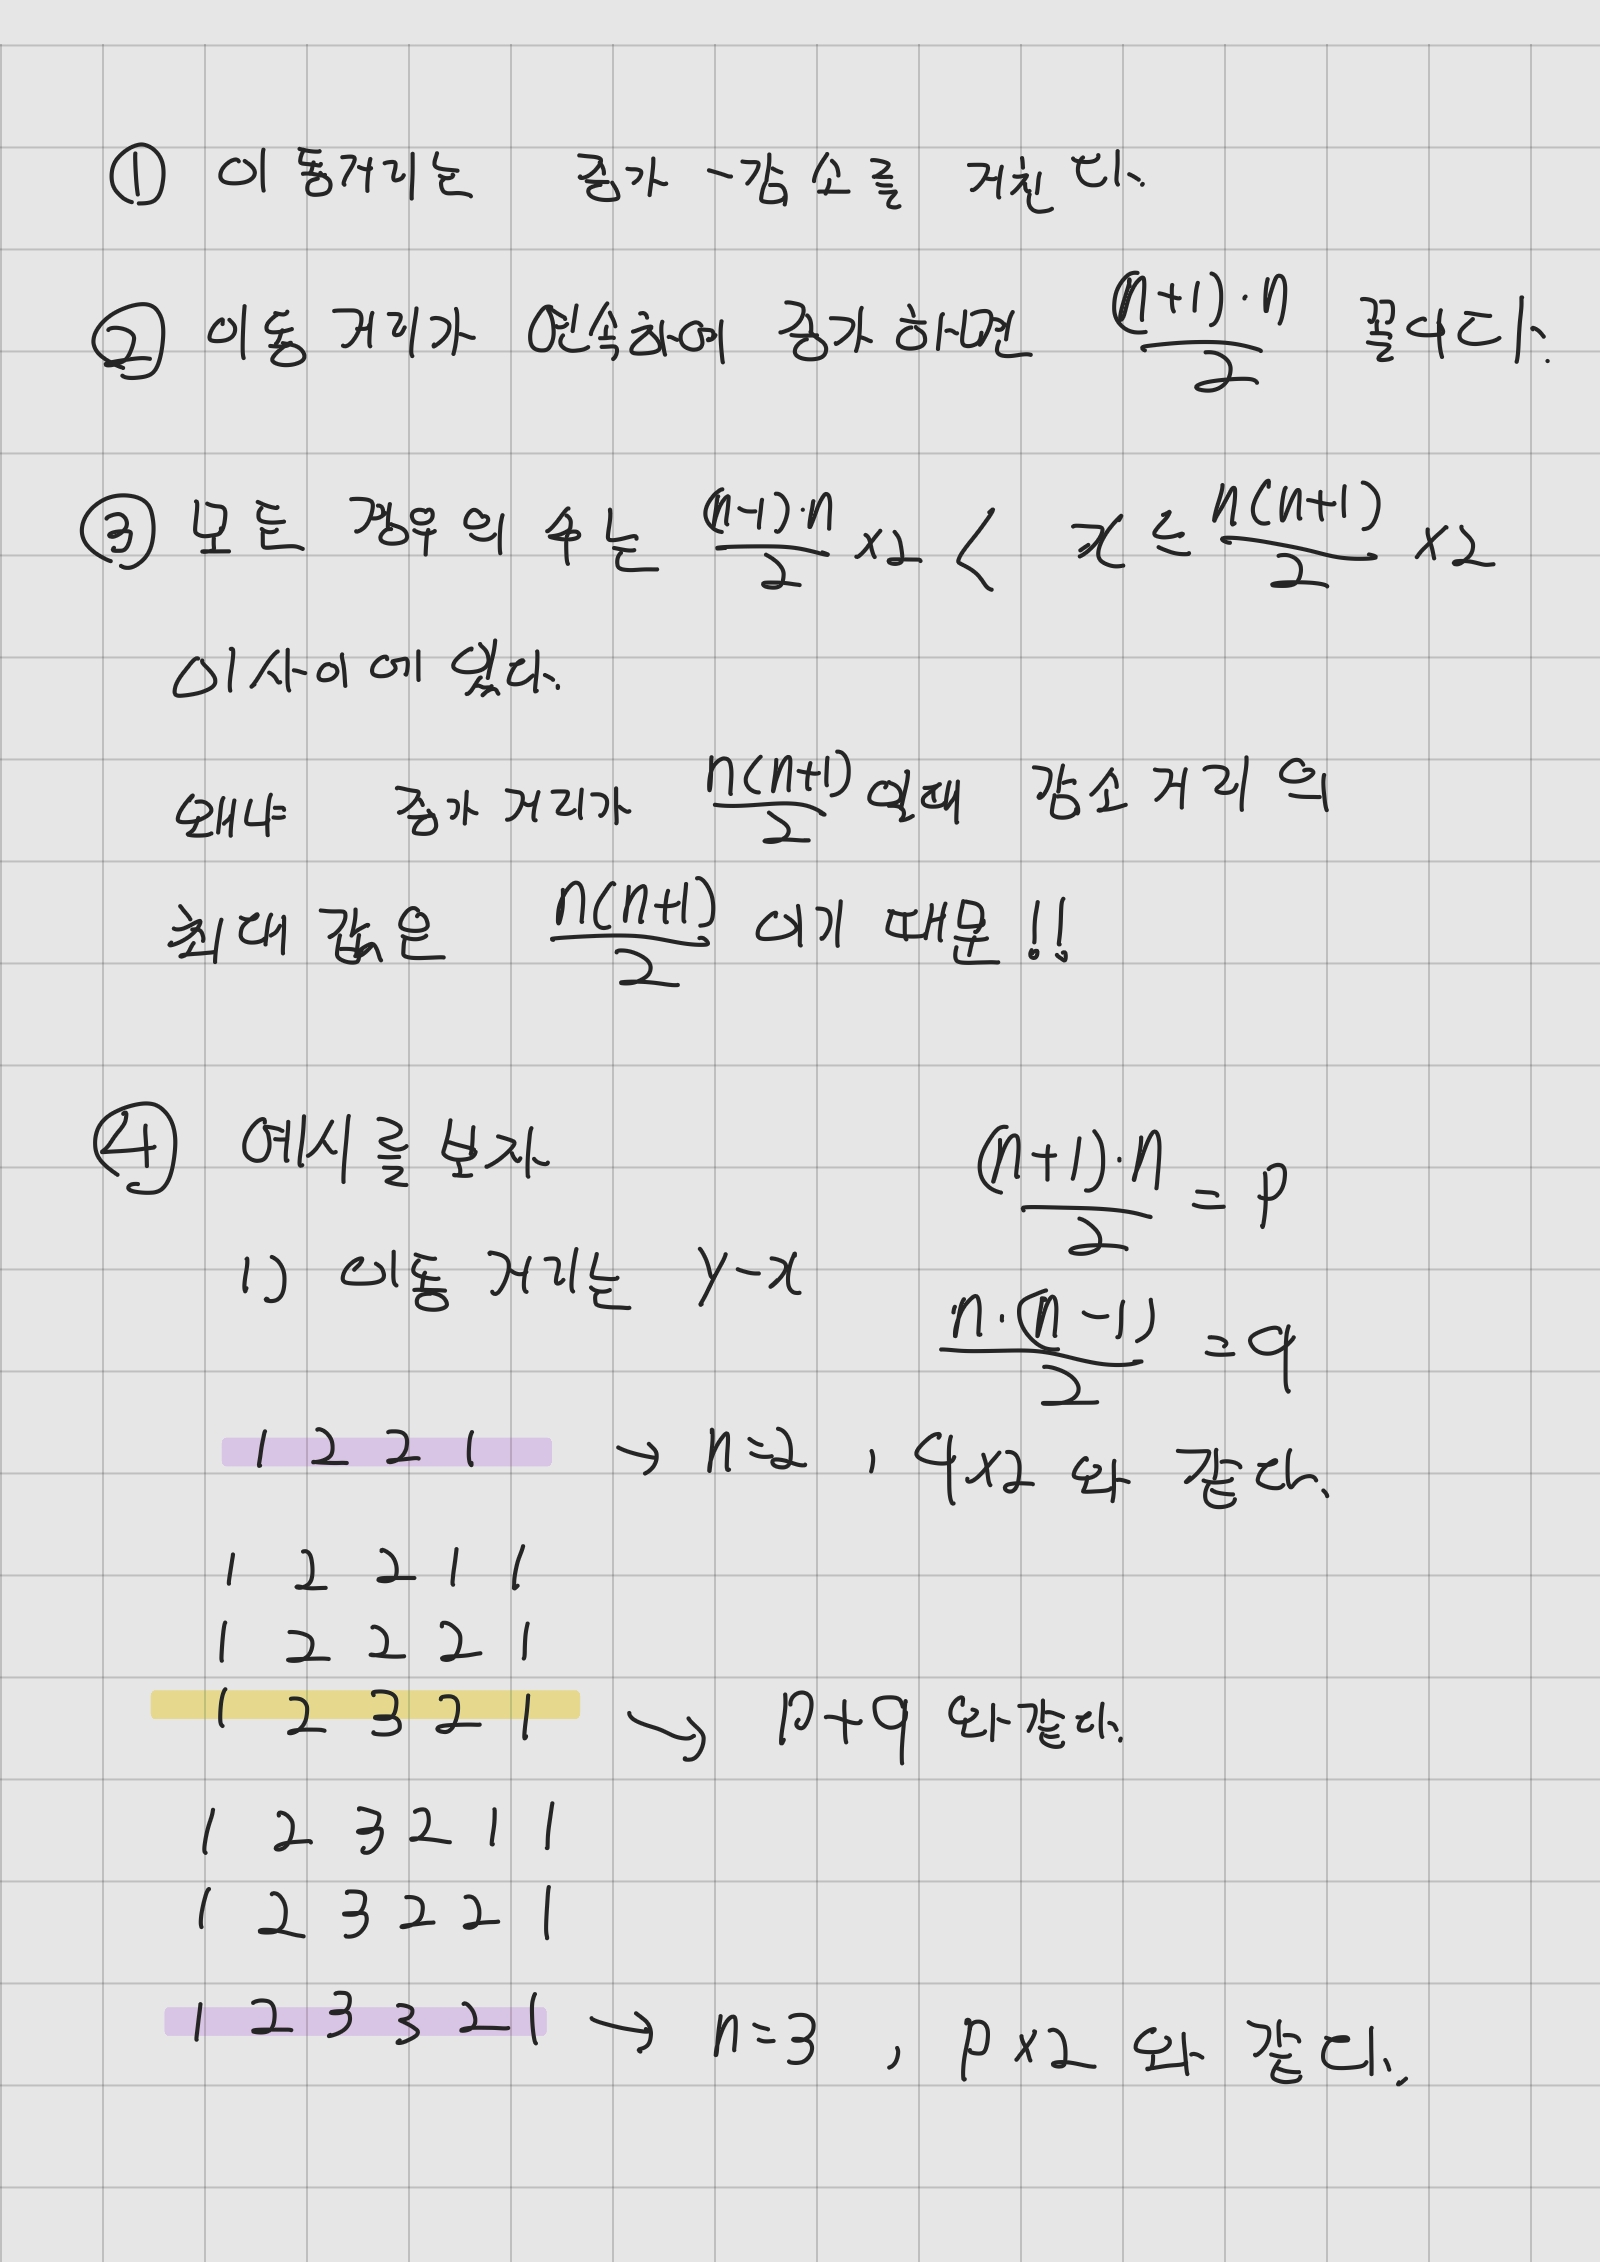 ① 이동거리는 증가-감소를 거친다.
② 이동 거리가 연속하여 증가하면 (n+1)·n/2 꼴이다.
③ 모든 경우의 수는 (n-1)·n/2 ×2 < x ≤ n(n+1)/2 ×2
이 사이에 있다.
왜냐면 증가 거리가 n(n+1)/2 일때 감소거리의
최대값은 n(n+1)/2 이기 때문!!
④ 예시를 보자
(n+1)·n/2 = p
1) 이동 거리는 y-x
n·(n-1)/2 = q
1 2 2 1 → n=2, q×2 와 같다.
1 2 2 1 1
1 2 2 2 1
1 2 3 2 1 → p+q 와 같다.
1 2 3 2 1 1
1 2 3 2 2 1
1 2 3 3 2 1 → n=3, p×2 와 같다.